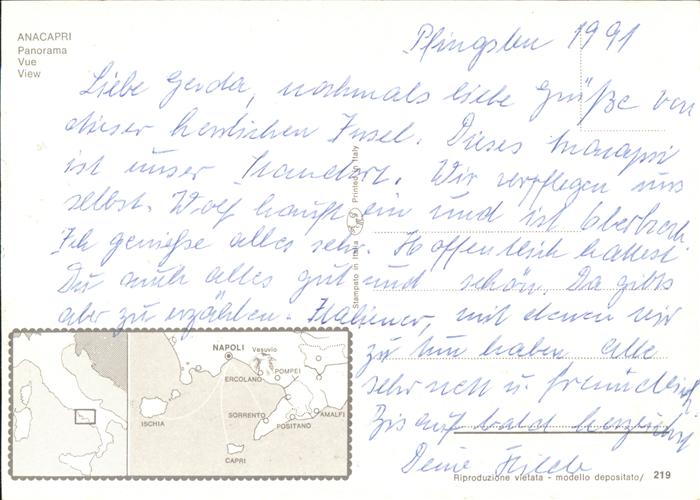 ANACAPRI
Panorama
Vue
View
Pfingsten 1991
Liebe Gerda, nochmals liebe Grüße von
dieser herrlichen Insel. Dieses Anacapri
ist unser Standort. Wir verpflegen uns
selbst. Wolf kauft ein und ist Oberkoch.
Ich genieße alles sehr. Hoffentlich hattest
Du auch alles gut und schön. Da gibts
aber zu erzählen. Italiener, mit denen wir
zu tun haben alle
sehr nett u. freundlich
Bis auf bald herzlichst
Deine Hilde
Stampato in Italia
Printed in Italy
NAPOLI
Vesuvio
ERCOLANO
POMPEI
ISCHIA
SORRENTO
POSITANO
AMALFI
CAPRI
Riproduzione vietata - modello depositato/ 219